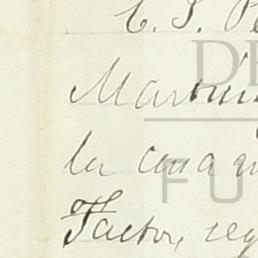 C. S. Pe
Martin
la casa n
Factor, seg
DE
FU